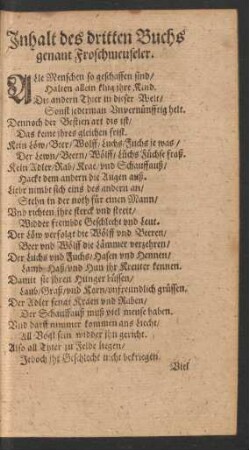 Inhalt des dritten Buchs
genant Froschmeuseler.
Alle Menschen so geschaffen sind/
Halten allein klug ihre Kind.
Die andern Thier in dieser Welt/
Sonst jederman Unvernünfftig helt.
Dennoch der Bestien art dis ist/
Das keine ihres gleichen frist.
Kein Löw/Beer/Wolff/Luchs/Fuchs je was/
Der Lewn/Beern/Wölff/Lüchs Füchse fraß.
Kein Adler/Rab/Krae/und Schauffauß/
Hackt dem andern die Augen auß.
Lieber nimbt sich eins des andern an/
Stehn in der noth für einen Mann/
Vnd richten ihre sterck und streit/
Widder frembde Geschlecht und Leut.
Der Löw verfolgt die Wölff und Beeren/
Beer und Wölff die Lämmer verzehren/
Der Luchs und Fuchs/Hasen und Hennen/
Lamb/Haß/und Hun ihr Kreuter kennen.
Damit sie ihren Hunger büssen/
Laub/Graß/und Korn/unfreundlich grüssen.
Der Adler fengt Kraen und Raben/
Der Schauffauß muß viel meuse haben.
Vnd darff nimmer kommen ans liecht/
All Vögl sein widder ihn gericht.
Also all Thier zu Felde liegen/
Jedoch ihr Geschlecht nicht bekriegen.
Viel